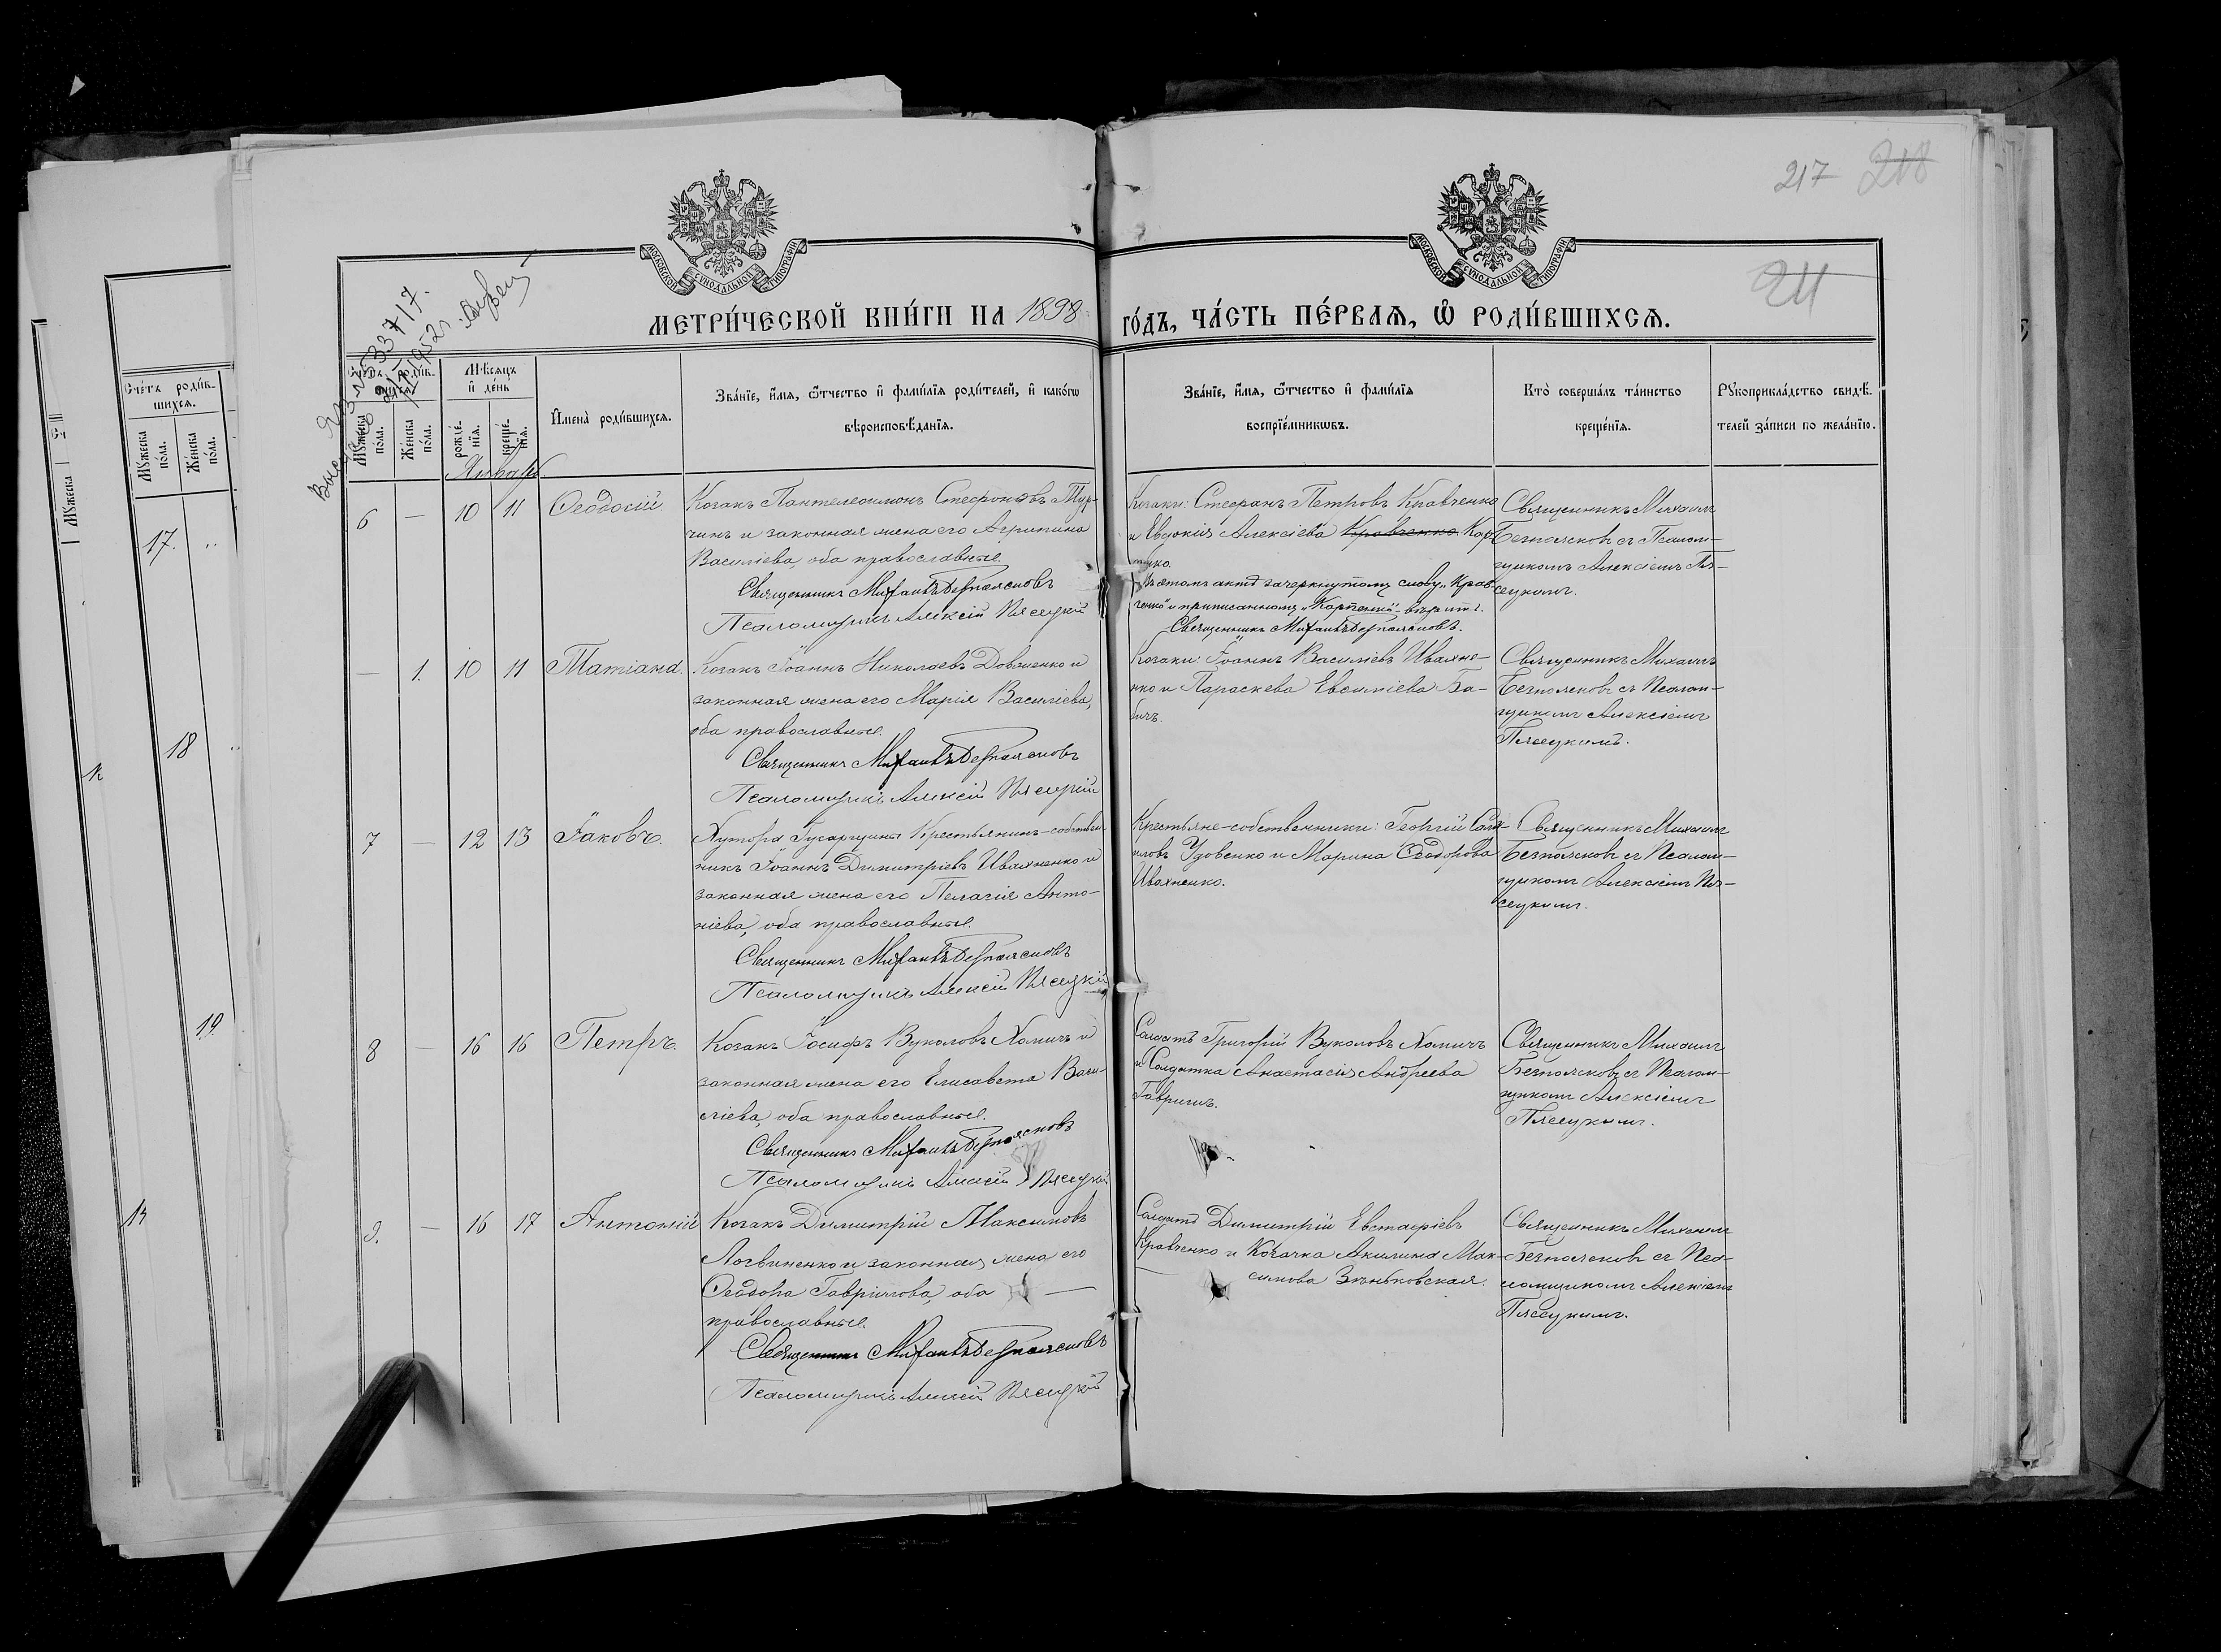 217 218
211
МОСКОВСКОЙ СУНОДАЛЬНОЙ ТИПОГРАФІИ
МОСКОВСКОЙ СУНОДАЛЬНОЙ ТИПОГРАФІИ
МЕТРИ́ЧЕСКОЙ КНИ́ГИ НА 1898 ГО́ДЪ, ЧА́СТЬ ПЕ́РВАѦ, Ѡ҆ РОДИ́ВШИХСѦ.
Сче́тъ роди́в-
шихсѧ.
Мꙋ́жеска по́ла.
Же́нска по́ла.
Мѣ́сѧцъ
и҆ де́нь
рожде́-
нїѧ.
креще́-
нїѧ.
И҆мена̀ роди́вшихсѧ.
Зва́нїе, и҆́мѧ, ѻ҆́тчество и҆ фами́лїѧ роди́телей, и҆ како́гѡ
вѣроисповѣ́данїѧ.
Зва́нїе, и҆́мѧ, ѻ҆́тчество и҆ фами́лїѧ
воспрїе́мникѡвъ.
Кто̀ соверша́лъ та́инство
креще́нїѧ.
Рꙋкоприкла́дство свидѣ́-
телей за́писи по жела́нїю.
Январь
6 — 10 11 Ѳеодосій.
Козакъ Пантелеимонъ Стефановъ Тур-
чинъ и законная жена его Агрипина
Василіева, оба православные.
Священникъ Михаилъ Безпоясковъ
Псаломщикъ Алексій Пясецкій
Козаки: Стефанъ Петровъ Кравченко
и Евдокія Алексіева Кравченко Кар-
пенко.
Въ этомъ актѣ зачеркнутому слову „Крав-
ченко" и приписанному „Карпенко" - вѣрить.
Священникъ Михаилъ Безпоясковъ.
Священникъ Михаилъ
Безпоясковъ съ Псалом-
щикомъ Алексіемъ Пя-
сецкимъ.
— 1. 10 11 Татіана.
Козакъ Іоаннъ Николаевъ Довженко и
законная жена его Марія Василіева,
оба православные.
Священникъ Михаилъ Безпоясковъ
Псаломщикъ Алексій Пясецкій
Козаки: Іоаннъ Василіевъ Ивахне-
нко и Параскева Евсигніева Ба-
бичъ.
Священникъ Михаилъ
Безпоясковъ съ Псалом-
щикомъ Алексіемъ
Пясецкимъ.
7 — 12 13 Іаковъ.
Хутора Гусарщины Крестьянинъ-собствен-
никъ Іоаннъ Димитріевъ Ивахненко и
законная жена его Пелагія Анто-
ніева, оба православные.
Священникъ Михаилъ Безпоясковъ
Псаломщикъ Алексій Пясецкій
Крестьяне-собственники: Георгій
Удовенко и Марина Ѳеодорова
Ивахненко.
Священникъ Михаилъ
Безпоясковъ съ Псалом-
щикомъ Алексіемъ Пя-
сецкимъ.
8 — 16 16 Петръ.
Козакъ Іосифъ Вуколовъ Хомичъ и
законная жена его Елисавета Васи-
ліева, оба православные.
Священникъ Михаилъ Безпоясковъ
Псаломщикъ Алексій Пясецкій
Солдатъ Григорій Вуколовъ Хомичъ
и Солдатка Анастасія Андреева
Гавришъ.
Священникъ Михаилъ
Безпоясковъ съ Псалом-
щикомъ Алексіемъ
Пясецкимъ.
9. — 16 17 Антоній
Козакъ Димитрій Максимовъ
Логвиненко и законная жена его
Ѳеодора Гавриилова, оба —
православные.
Священникъ Михаилъ Безпоясковъ
Псаломщикъ Алексій Пясецкій
Солдатъ Димитрій Евстафіевъ
Кравченко и Козачка Акилина Мак-
симова Зѣньковская.
Священникъ Михаилъ
Безпоясковъ съ Пса-
ломщикомъ Алексіемъ
Пясецкимъ.
Сче́тъ роди́в-
шихсѧ.
Мꙋ́жеска по́ла.
Же́нска по́ла.
Мꙋ́жеска
17.
18
19.